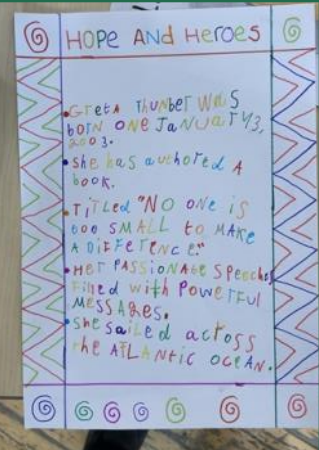 HOPE AND HEROES
•Greta Thunber was
born one January3,
2003.
•She has authored A
book.
•Titled "NO one is
too SMALL to MAKE
A DIFFERENCE."
•Her PASSIONAte speeches
filled with powerful
MESSAGES.
•She sailed across
the ATLANtic oceAN.